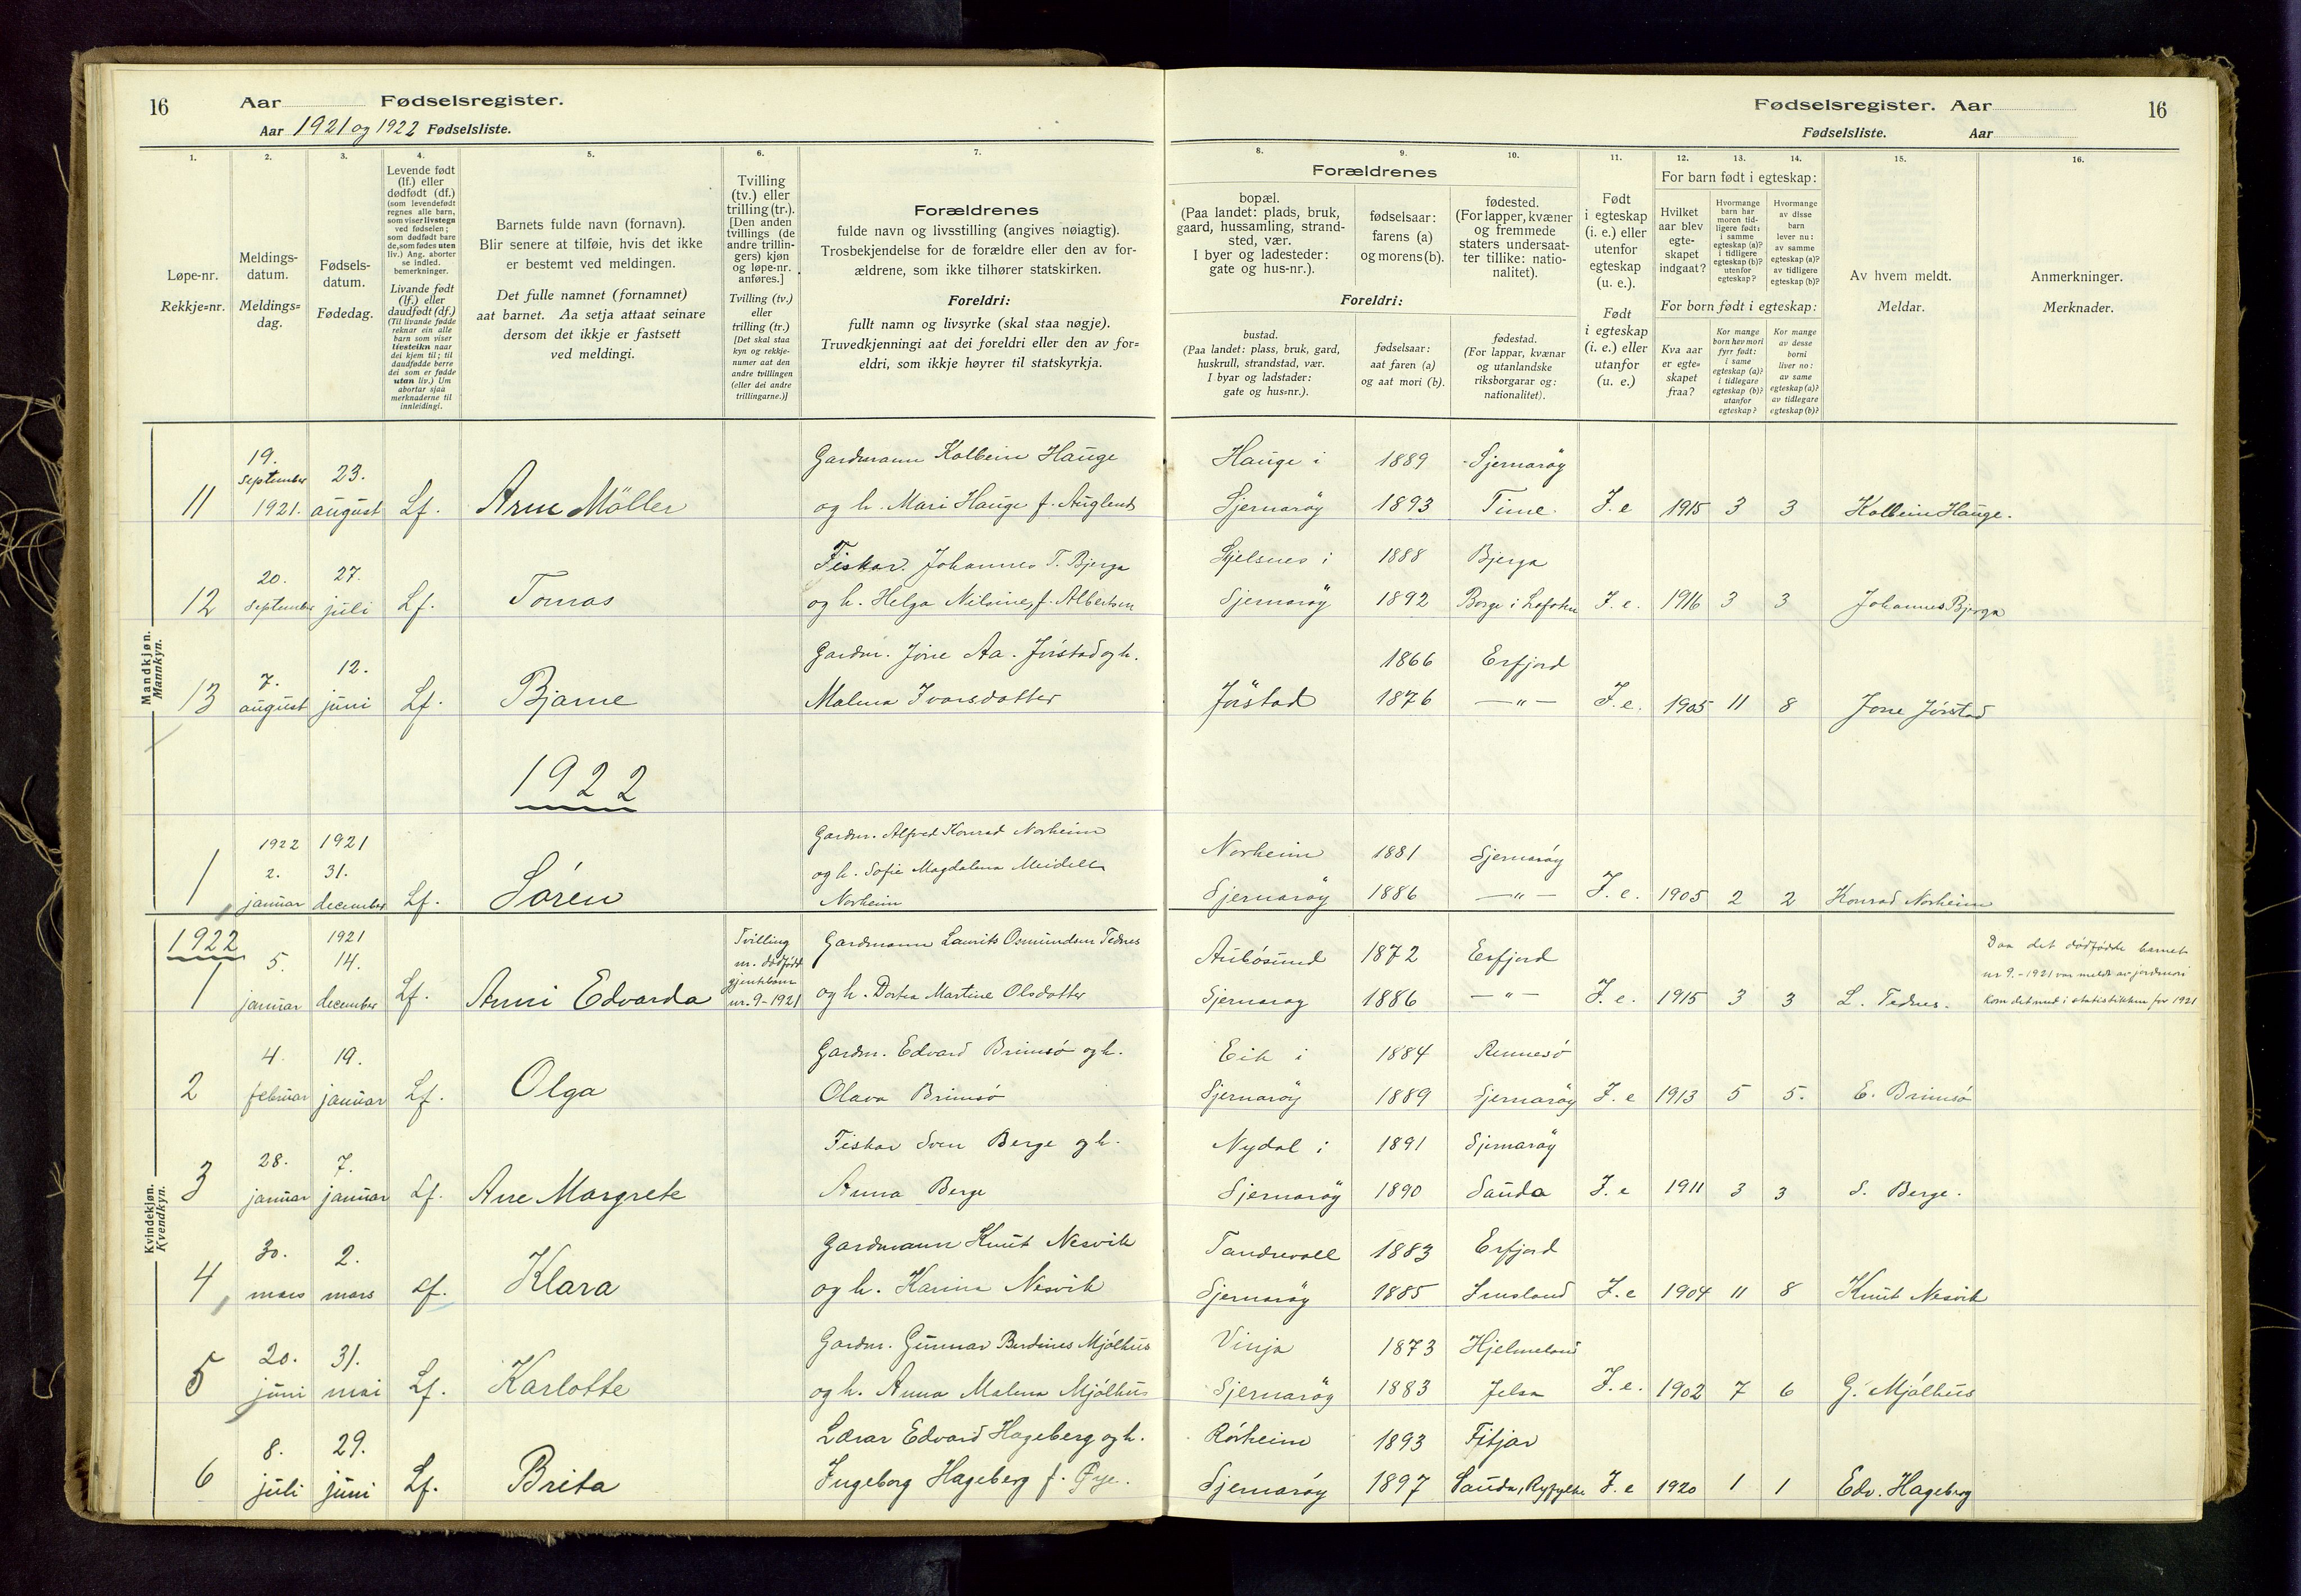 16
Aar Fødselsregister.
Aar 1921 og 1922 Fødselsliste.
Fødselsregister. Aar
Fødselsliste. Aar
16
1. 2. 3. 4. 5. 6. 7. 8. 9. 10. 11. 12. 13. 14. 15. 16.
Løpe-nr.
Rekkje=nr.
Meldings-
datum.
Meldings=
dag.
Fødsels-
datum.
Fødedag.
Levende født
(lf.) eller
dødfødt (df.)
(som levendefødt
regnes alle barn,
som viser livstegn
ved fødselen;
som dødfødt bare
de, som fødes uten
liv.) Ang. aborter
se indled.
bemerkninger.
Livande født
(lf.) eller
daudfødt (df.)
(Til livande fødde
reknar ein alle
barn som viser
livsteikn naar
dei kjem til; til
daudfødde berre
dei som er fødde
utan liv.) Um
abortar sjaa
merknaderne til
innleidingi.
Barnets fulde navn (fornavn).
Blir senere at tilføie, hvis det ikke
er bestemt ved meldingen.
Det fulle namnet (fornamnet)
aat barnet. Aa setja attaat seinare
dersom det ikkje er fastsett
ved meldingi.
Tvilling
(tv.) eller
trilling (tr.).
[Den anden
tvillings (de
andre trillin-
gers) kjøn
og løpe-nr.
anføres.]
Tvilling (tv.)
eller
trilling (tr.)
[Det skal staa
kyn og rekkje-
numer aat den
andre tvillingen
(eller dei andre
trillingarne.)]
Forældrenes
fulde navn og livsstilling (angives nøiagtig).
Trosbekjendelse for de forældre eller den av for-
ældrene, som ikke tilhører statskirken.
Foreldri:
fullt namn og livsyrke (skal staa nøgje).
Truvedkjenningi aat dei foreldri eller den av for=
eldri, som ikkje høyrer til statskyrkja.
Forældrenes
bopæl.
(Paa landet: plads, bruk,
gaard, hussamling, strand-
sted, vær.
I byer og ladesteder:
gate og hus-nr.).
fødselsaar:
farens (a)
og morens (b).
fødested.
(For lapper, kvæner
og fremmede
staters undersaat-
ter tillike: natio-
nalitet).
Foreldri:
bustad.
(Paa landet: plass, bruk, gard,
huskrull, strandstad, vær.
I byar og ladstader:
gate og hus=nr.).
fødselsaar:
aat faren (a)
og aat mori (b).
fødestad.
(For lappar, kvænar
og utanlandske
riksborgarar og:
nationalitet).
Født
i egteskap
(i. e.) eller
utenfor
egteskap
(u. e.).
Født
i egteskap
(i. e.) eller
utanfor
(u. e.)
For barn født i egteskap:
Hvilket
aar blev
egte-
skapet
indgaat?
Hvormange
barn har
moren tid-
ligere født:
i samme
egteskap (a)?
i tidligere
egteskap (b)?
utenfor
egteskap?
Hvormange
av disse
barn
lever nu:
av samme
egteskap (a)?
av tidligere
egteskap (b)?
For born født i egteskap:
Kva aar
er egte=
skapet
fraa?
Kor mange
born hev mori
fyrr født:
i same
egteskap (a)?
i tidlegare
egteskap (b)?
utanfor
egteskap?
Kor mange
av desse
borni
liver no:
av same
egteskap (a)?
av tidlegare
egteskap (b)?
Av hvem meldt.
Meldar.
Anmerkninger.
Merknader.
Mandkjøn.
Mannkyn.
19. Gardmann Kolbein Hauge Hauge i 1889 Sjernaröy
september 23.
11 1921. august Lf. Arne Möller og h. Mari Hauge f. Auglend Sjernaröy 1893 Time. I. e 1915 3 3 Kolbein Hauge.
20. 27. Fiskar. Johannes T. Bjerga i 1888 Bjerga
12 september juli Lf. Tomas og h. Helga Nilsine, f. Albertsen Sjernaröy 1892 Borge i Lofoten I. e. 1916 3 3 Johannes Bjerga
7. 12. Gardm. Jone Aa. Jörstad og h. 1866 Erfjord
13 august juni Lf. Bjarne Malena Ivarsdotter Jörstad 1876 — „ — I. e. 1905 11 8 Jone Jörstad
1922
1922 1921 Gardm. Alfred Konrad Norheim Norheim 1881 Sjernaröy
2. 31. og h. Sofie Magdalena Meidell
1 januar december Lf. Sören Norheim Sjernaröy 1886 — „ — I. e. 1905 2 2 Konrad Norheim
Kvindekjøn.
Kvendkyn.
1922 1921 Tvilling Gardmann Laurits Osmundsen Tednes Aubösund 1872 Erfjord Daa det dödfödde barnet
5. 14. m. dödfödt nr 9.-1921 var meldt av jordmori
1 januar december Lf. Anni Edvarda gjentebarn nr. 9-1921 og h. Dortea Martine Olsdotter Sjernaröy 1886 — „ — I. e. 1915 3 3 L. Tednes. kom det med i statistikken for 1921
4. 19. Gardm. Edvard Brimsö og h. Eik i 1884 Rennesö
2 februar januar Lf. Olga Olava Brimsö Sjernaröy 1889 Sjernaröy I. e 1913 5 5. E. Brimsö
28. 7. Fiskar Sven Berge og h. Nydal i 1891 Sjernaröy
3 januar januar Lf. Ane Margrete Anna Berge Sjernaröy 1890 Sauda I. e 1911 3 3 S. Berge.
30. 2. Gardmann Knut Nesvik Tandrevoll 1883 Erfjord
4 mars mars Lf. Klara og h. Karina Nesvik Sjernaröy 1885 Imsland I. e 1904 11 8 Knut Nesvik
20. 31. Gardm. Gunnar Berdines Mjölhus Vinja 1873 Hjelmeland
5 juni mai Lf. Karlotte og h. Anna Malena Mjölhus Sjernaröy 1883 Jelsa I. e. 1902 7 6 G. Mjölhus
8. 29. Lærar Edvard Hageberg og h. Rörheim 1893 Fitjar
6 juli juni Lf. Brita Ingeborg Hageberg f. Øye. Sjernaröy 1897 Sauda, Ryfylke I. e 1920 1 1 Edv. Hageberg